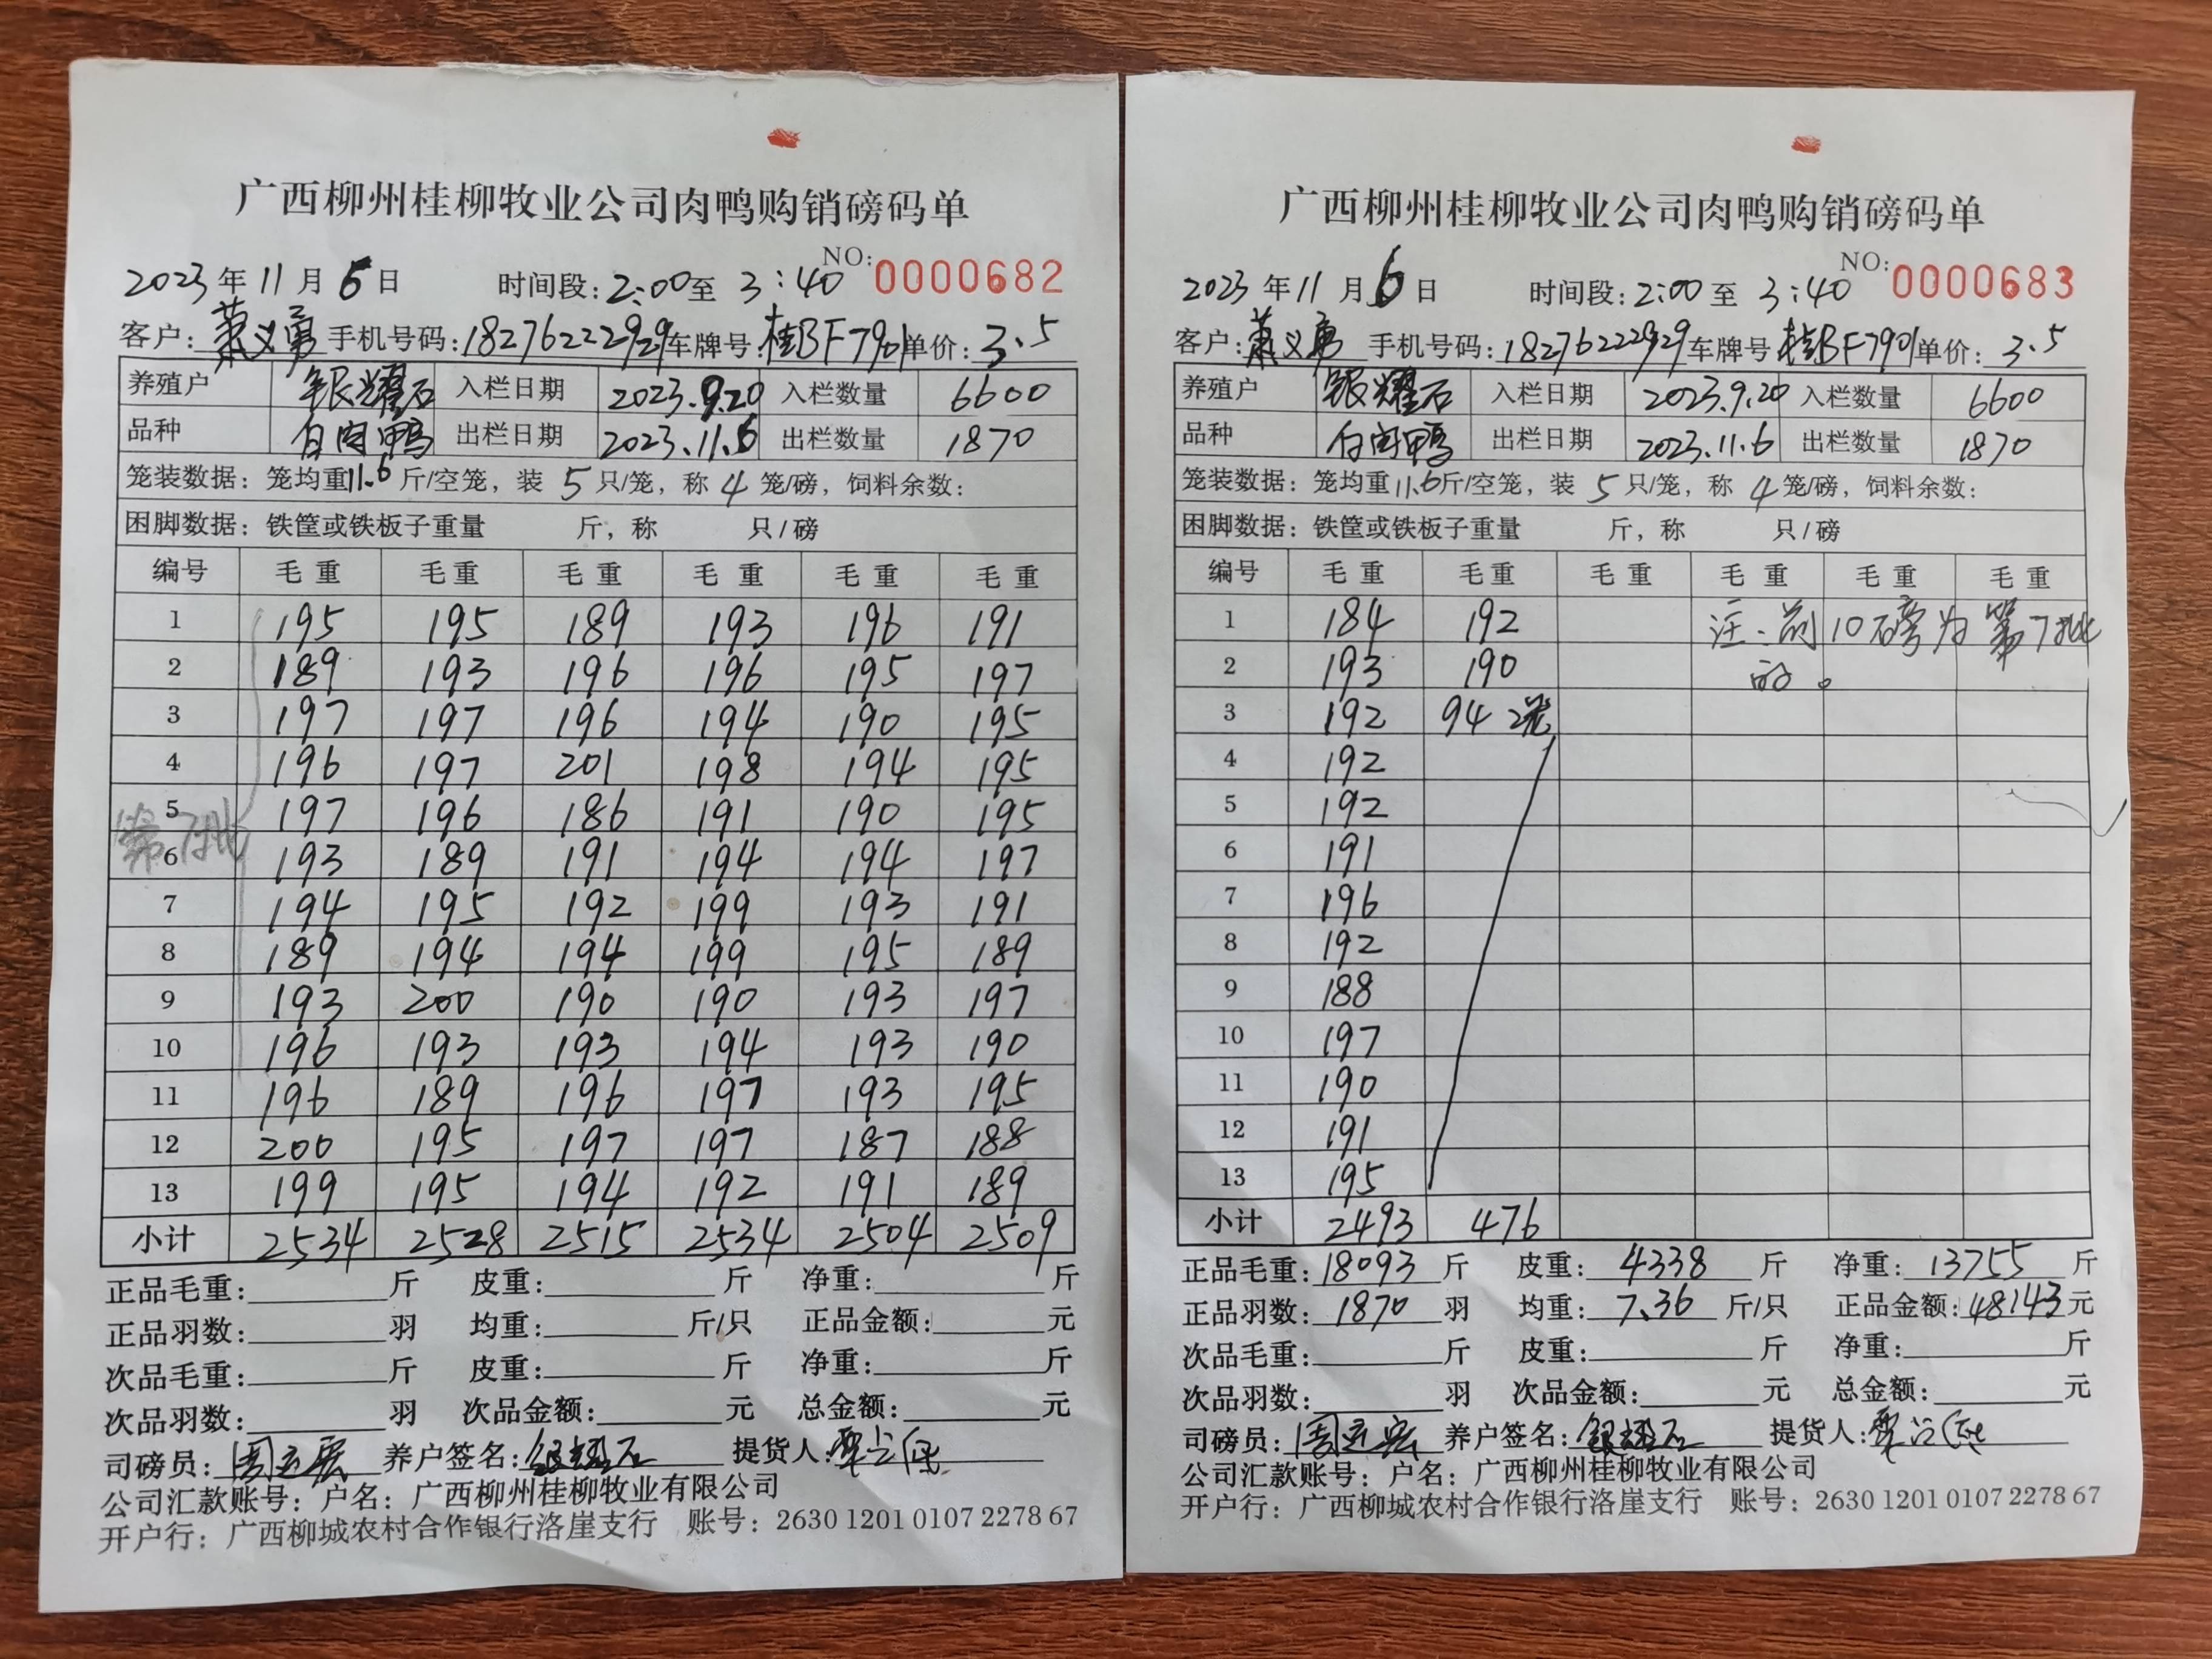 广西柳州桂柳牧业公司肉鸭购销磅码单
NO: 0000682
2023 年 11 月 6 日 时间段: 2:00 至 3:40
客户: 萧义勇 手机号码: 18276222929 车牌号: 桂BF7901 单价: 3.5
养殖户 银耀石 入栏日期 2023.9.20 入栏数量 6600
品种 白肉鸭 出栏日期 2023.11.6 出栏数量 1870
笼装数据: 笼均重 11.6 斤/空笼, 装 5 只/笼, 称 4 笼/磅, 饲料余数:
困脚数据: 铁筐或铁板子重量 斤, 称 只/磅
编号 毛重 毛重 毛重 毛重 毛重 毛重
1 195 195 189 193 196 191
2 189 193 196 196 195 197
3 197 197 196 194 190 195
4 196 197 201 198 194 195
5 197 196 186 191 190 195
第7批
6 193 189 191 194 194 197
7 194 195 192 199 193 191
8 189 194 194 199 195 189
9 193 200 190 190 193 197
10 196 193 193 194 193 190
11 196 189 196 197 193 195
12 200 195 197 197 187 188
13 199 195 194 192 191 189
小计 2534 2528 2515 2534 2504 2509
正品毛重: 斤 皮重: 斤 净重: 斤
正品羽数: 羽 均重: 斤/只 正品金额: 元
次品毛重: 斤 皮重: 斤 净重: 斤
次品羽数: 羽 次品金额: 元 总金额: 元
司磅员: 周立宏 养户签名: 银耀石 提货人:
公司汇款账号: 户名: 广西柳州桂柳牧业有限公司
开户行: 广西柳城农村合作银行洛崖支行 账号: 2630 1201 0107 2278 67
广西柳州桂柳牧业公司肉鸭购销磅码单
NO: 0000683
2023 年 11 月 6 日 时间段: 2:00 至 3:40
客户: 萧义勇 手机号码: 18276222929 车牌号 桂BF7901 单价: 3.5
养殖户 银耀石 入栏日期 2023.9.20 入栏数量 6600
品种 白肉鸭 出栏日期 2023.11.6 出栏数量 1870
笼装数据: 笼均重 11.6 斤/空笼, 装 5 只/笼, 称 4 笼/磅, 饲料余数:
困脚数据: 铁筐或铁板子重量 斤, 称 只/磅
编号 毛重 毛重 毛重 毛重 毛重 毛重
1 184 192 注:前10磅为第7批
2 193 190 的。
3 192 94 2笼
4 192
5 192
6 191
7 196
8 192
9 188
10 197
11 190
12 191
13 195
小计 2493 476
正品毛重: 18093 斤 皮重: 4338 斤 净重: 13755 斤
正品羽数: 1870 羽 均重: 7.36 斤/只 正品金额: 48143 元
次品毛重: 斤 皮重: 斤 净重: 斤
次品羽数: 羽 次品金额: 元 总金额: 元
司磅员: 周立宏 养户签名: 银耀石 提货人:
公司汇款账号: 户名: 广西柳州桂柳牧业有限公司
开户行: 广西柳城农村合作银行洛崖支行 账号: 2630 1201 0107 2278 67